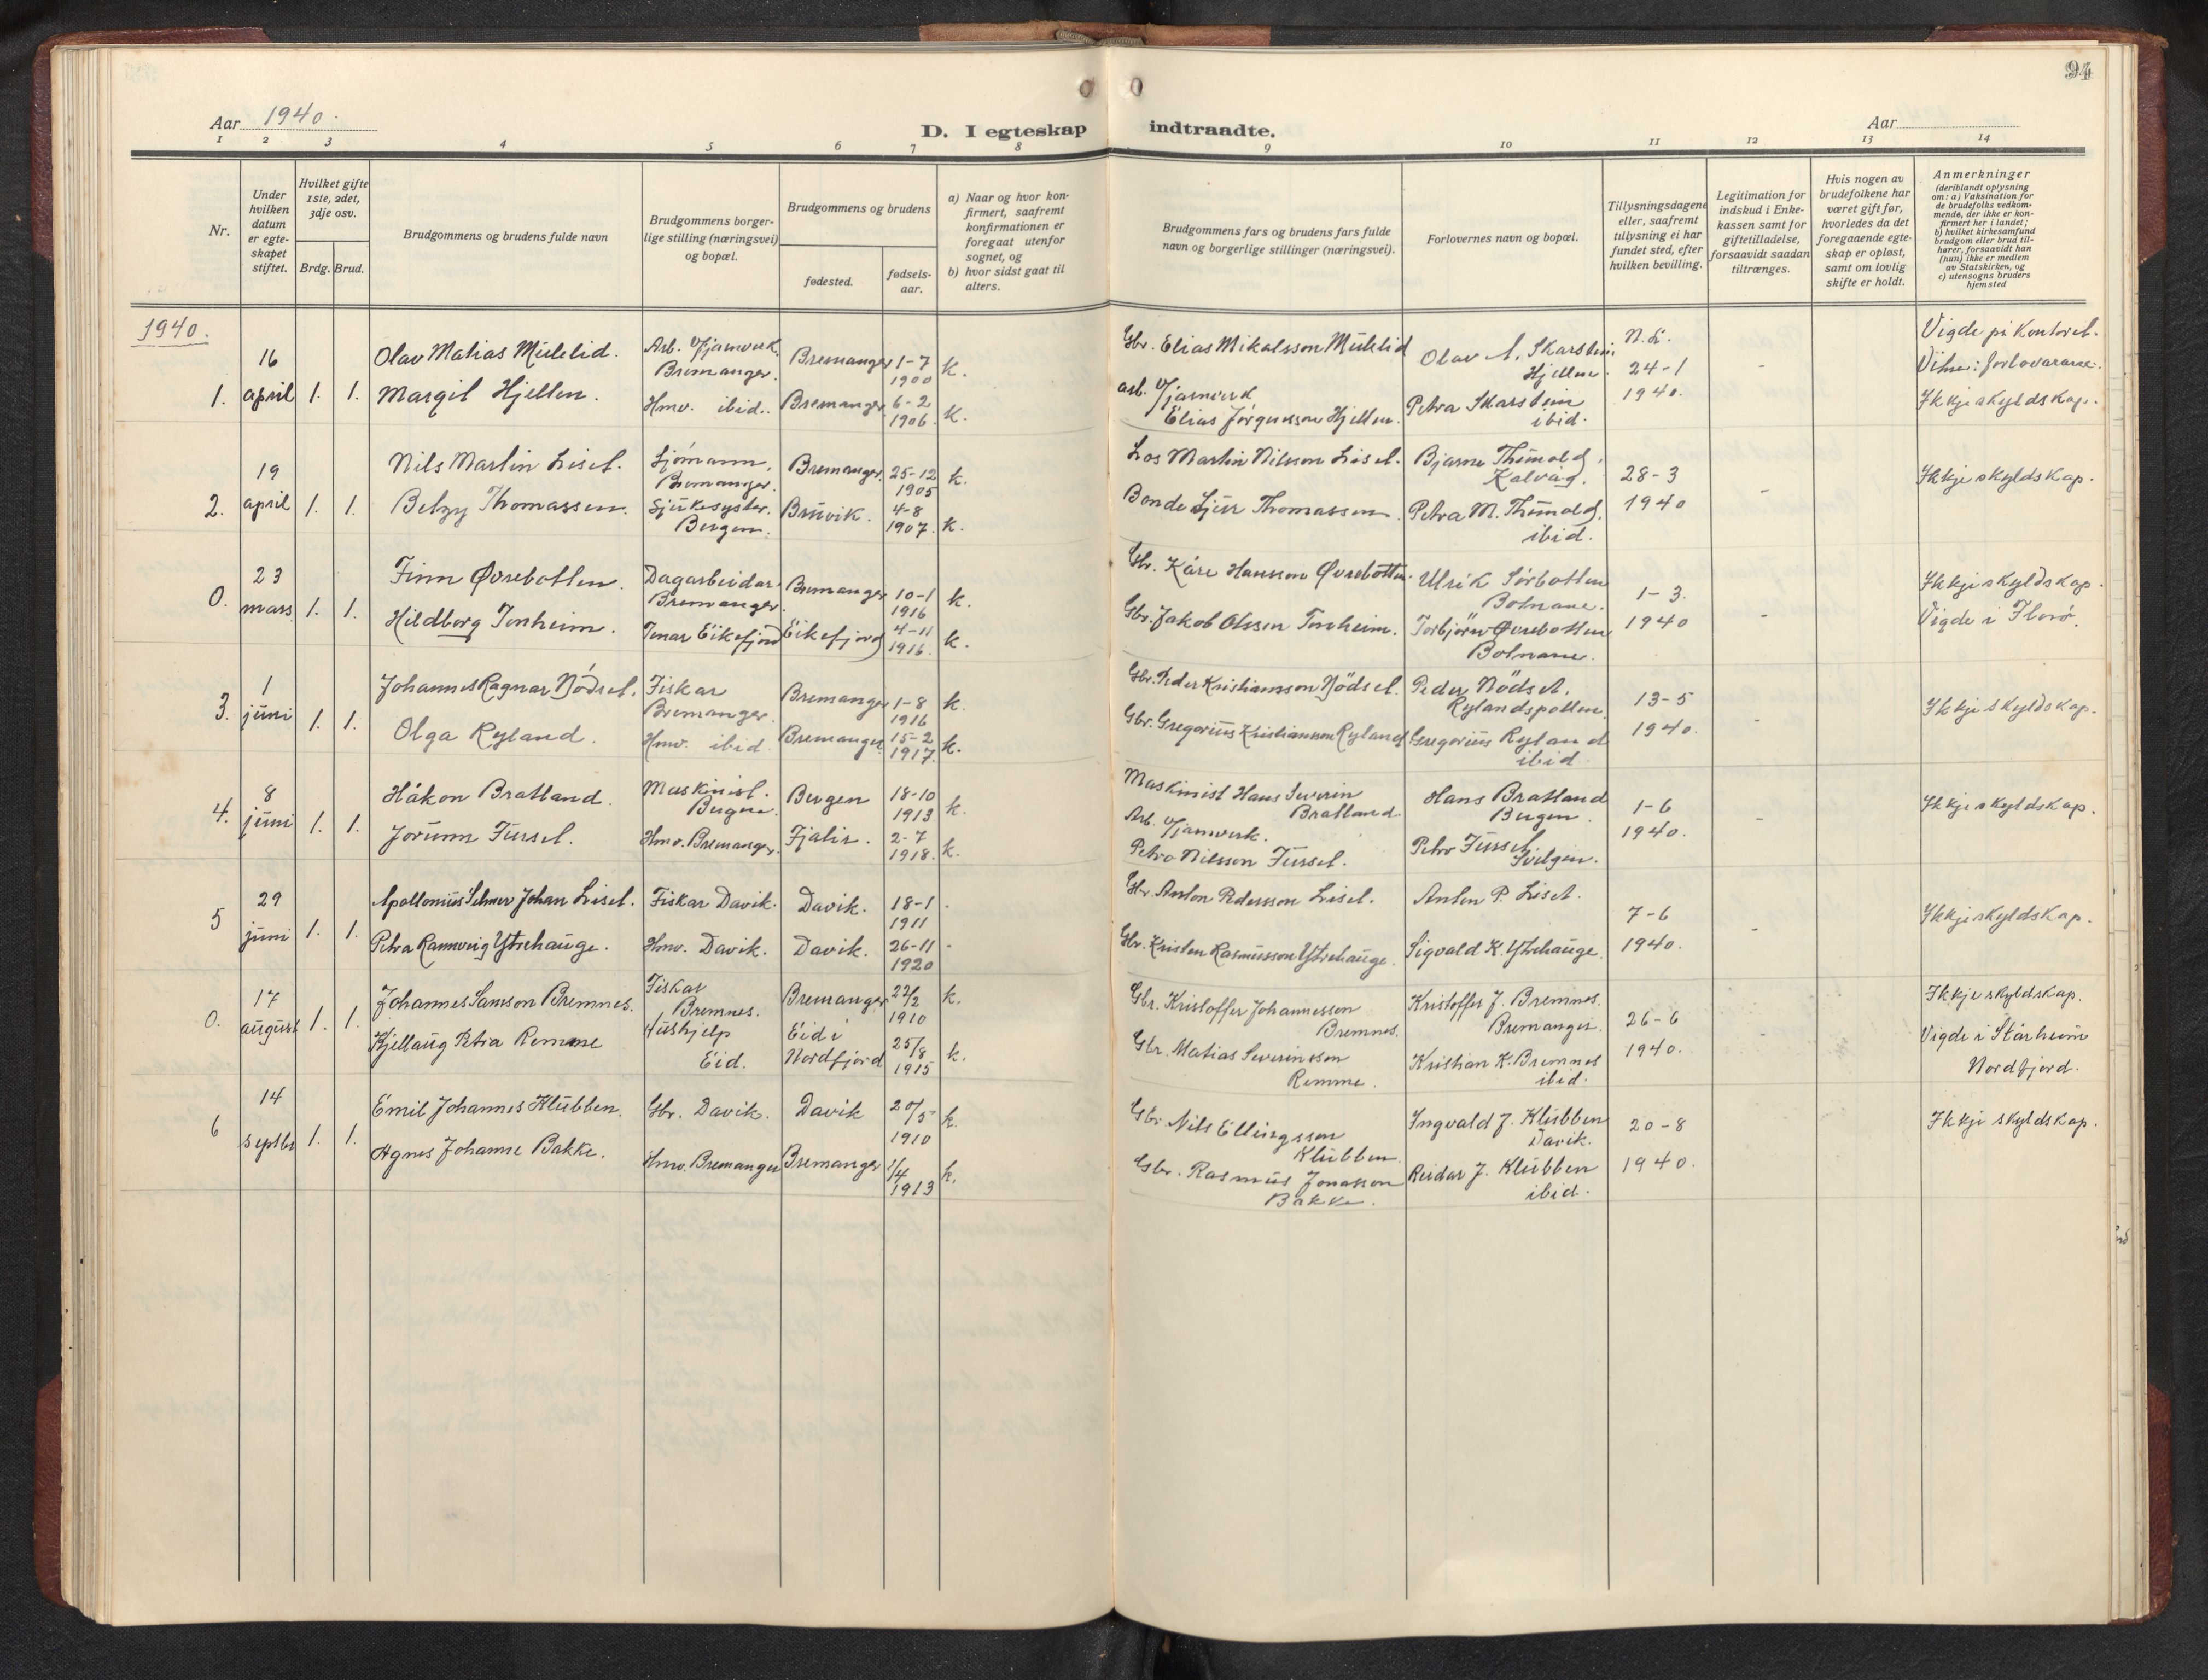 94
Aar 1940.
D. I egteskap indtraadte.
Aar
1 2 3 4 5 6 7 8 9 10 11 12 13 14
Nr.
Under hvilken datum er egte-skapet stiftet.
Hvilket gifte 1ste, 2det, 3dje osv.
Brdg. Brud.
Brudgommens og brudens fulde navn
Brudgommens borger-lige stilling (næringsvei) og bopæl.
Brudgommens og brudens
fødested.
fødsels-aar.
a) Naar og hvor kon-firmert, saafremt konfirmationen er foregaat utenfor sognet, og
b) hvor sidst gaat til alters.
Brudgommens fars og brudens fars fulde navn og borgerlige stillinger (næringsvei).
Forlovernes navn og bopæl.
Tillysningsdagene eller, saafremt tillysning ei har fundet sted, efter hvilken bevilling.
Legitimation for indskud i Enke-kassen samt for giftetilladelse, forsaavidt saadan tiltrænges.
Hvis nogen av brudefolkene har været gift før, hvorledes da det foregaaende egte-skap er opløst, samt om lovlig skifte er holdt.
Anmerkninger
(deriblandt oplysning om: a) Vaksination for de brudefolks vedkom-mende, der ikke er kon-firmert her i landet; b) hvilket kirkesamfund brudgom eller brud til-hører, forsaavidt han (hun) ikke er medlem av Statskirken, og c) utensogns bruders hjemsted
1940.
1. 16 april 1. 1.
Olav Matias Mülelid. Arb. Bremanger. Bremanger 1-7 1900 k.
Margit Hjellen. Hmv. ibid. Bremanger 6-2 1906. k.
Gbr. Elias Mikalsson Mülelid
Olav A. Skarstein Hjellen.
arb. Elias Jörgensson Hjellen.
Petra Skarstein ibid.
24-1 1940. -
Vigde på Kontoret.
Vitne: forlovarane.
Ikkje skyldskap.
2. 19 april 1. 1.
Nils Martin Liset. Sjömann, Bremanger. Bremanger. 25-12 1905 k.
Betzy Thomassen. Sjükesyster. Bergen. Brüvik. 4-8 1907. k.
Los Martin Nilsson Liset.
Bonde Sjür Thomassen.
Kalvåg.
Petra M. ibid.
28-3 1940 -
Ikkje skyldskap.
0. 23 mars 1. 1.
Finn Øvrebotten. Dagarbeidar. Bremanger. Bremanger 10-1 1916 k.
Hildborg Tonheim. Eikefjord Eikefjord 4-11 1916. k.
Gbr. Kåre Hansson Øvrebotten.
Gbr. Jakob Olsson Tonheim.
Ulrik Sörbotten Botnane.
Torbjörn Øvrebotten Botnane.
1-3. 1940 -
Ikkje skyldskap.
Vigde i Florö.
3. 1 jüni 1. 1.
Johannes Ragnar Nödset. Fiskar Bremanger. Bremanger 1-8 1916 k.
Olga Ryland. Hmv. ibid. Bremanger. 15-2 1917. k.
Gbr. Peder Kristiansson Nödset.
Gbr. Gregoriüs Kristiansson Ryland
Peder Nödset, Rylandspollen.
Gregoriüs Ryland ibid.
13-5 1940.
Ikkje skyldskap.
4. 8 jüni 1. 1.
Håkon Bratland. Maskinist. Bergen. Bergen 18-10 1913 k.
Jorünn Fürset. Hmv. Bremanger. Fjalir. 2-7 1918. k.
Maskinist Hans Severin Bratland.
Arb. Petro Nilsson Fürset.
Hans Bratland Bergen.
Petro Fürset, Svelgen.
1-6 1940. -
Ikkje skyldskap.
5 29 jüni 1. 1.
Apolloniüs Selmer Johan Liset. Fiskar Davik. Davik. 18-1 1911 -
Petra Rannveig Ytrehauge. Hmv. Davik. Davik. 26-11 1920 -
Gbr. Anton Pedersson Liset.
Gbr. Kristen Rasmüsson Ytrehaüge.
Anton P. Liset.
Sigvald K. Ytrehaüge.
7-6 1940. -
Ikkje skyldskap.
0. 17 aügüst 1. 1.
Johannes Samson Bremnes. Fiskar Bremnes. Bremanger 22/2 1910 k.
Kjellaüg Petra Remme Hüshjelp Eid. Eid i Nordfjord 25/8 1915 k.
Gbr. Kristoffer Johannesson Bremnes.
Gbr. Matias Severinsson Remme.
Kristoffer J. Bremnes. Bremanger.
Kristian K. Bremnes ibid.
26-6 1940. -
Ikkje skyldskap.
Vigde i Stårheim Nordfjord.
6 14 septbr 1. 1.
Emil Johannes Klübben. Gbr. Davik. Davik 20/5 1910 k.
Agnes Johanne Bakke. Hmv. Bremanger Bremanger 1/4 1913 k.
Gbr. Nils Ellingsson Klübben.
Gbr. Rasmüs Jonasson Bakke.
Ingvald J. Klübben Davik.
Reidar J. Klübben ibid.
20-8 1940.
Ikkje skyldskap.